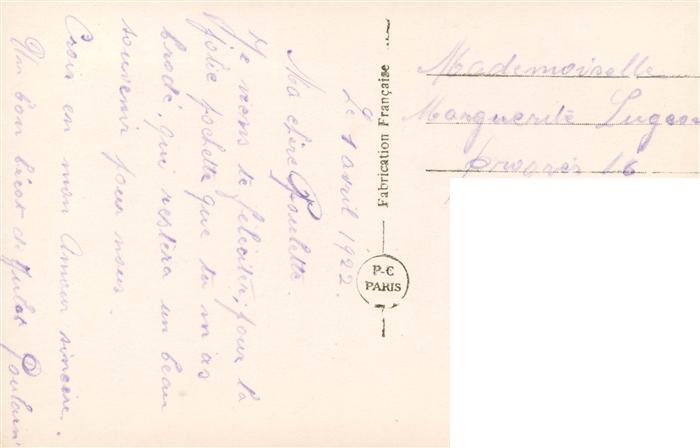 Le 1 avril 1922.
Ma chère Paulette.
Je viens te féliciter, pour la
jolie pochette que tu m'as
brodé, qui restera un beau
souvenir pour nous.
Crois en mon Amour sincère.
Un bon bécot de Jules Poulain
Fabrication Française
P-C
PARIS
Mademoiselle
Marguerite
16